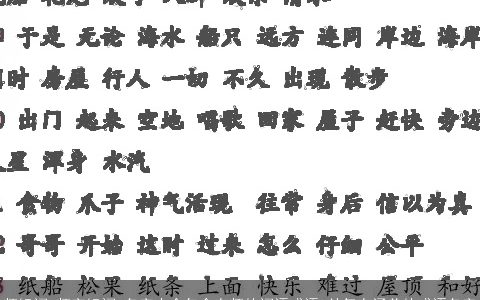 于是 无论 海水 船只 远方 连同 岸边 海岸
时 房屋 行人 一切 不久 出现 散步
0 出门 起来 空地 唱歌 回家 屋子 赶快 旁边
星 浑身 水汽
食物 爪子 神气活现 往常 身后 信以为真
2 哥哥 开始 这时 过来 怎么 仔细 公平
3 纸船 松果 纸条 上面 快乐 难过 屋顶 和好